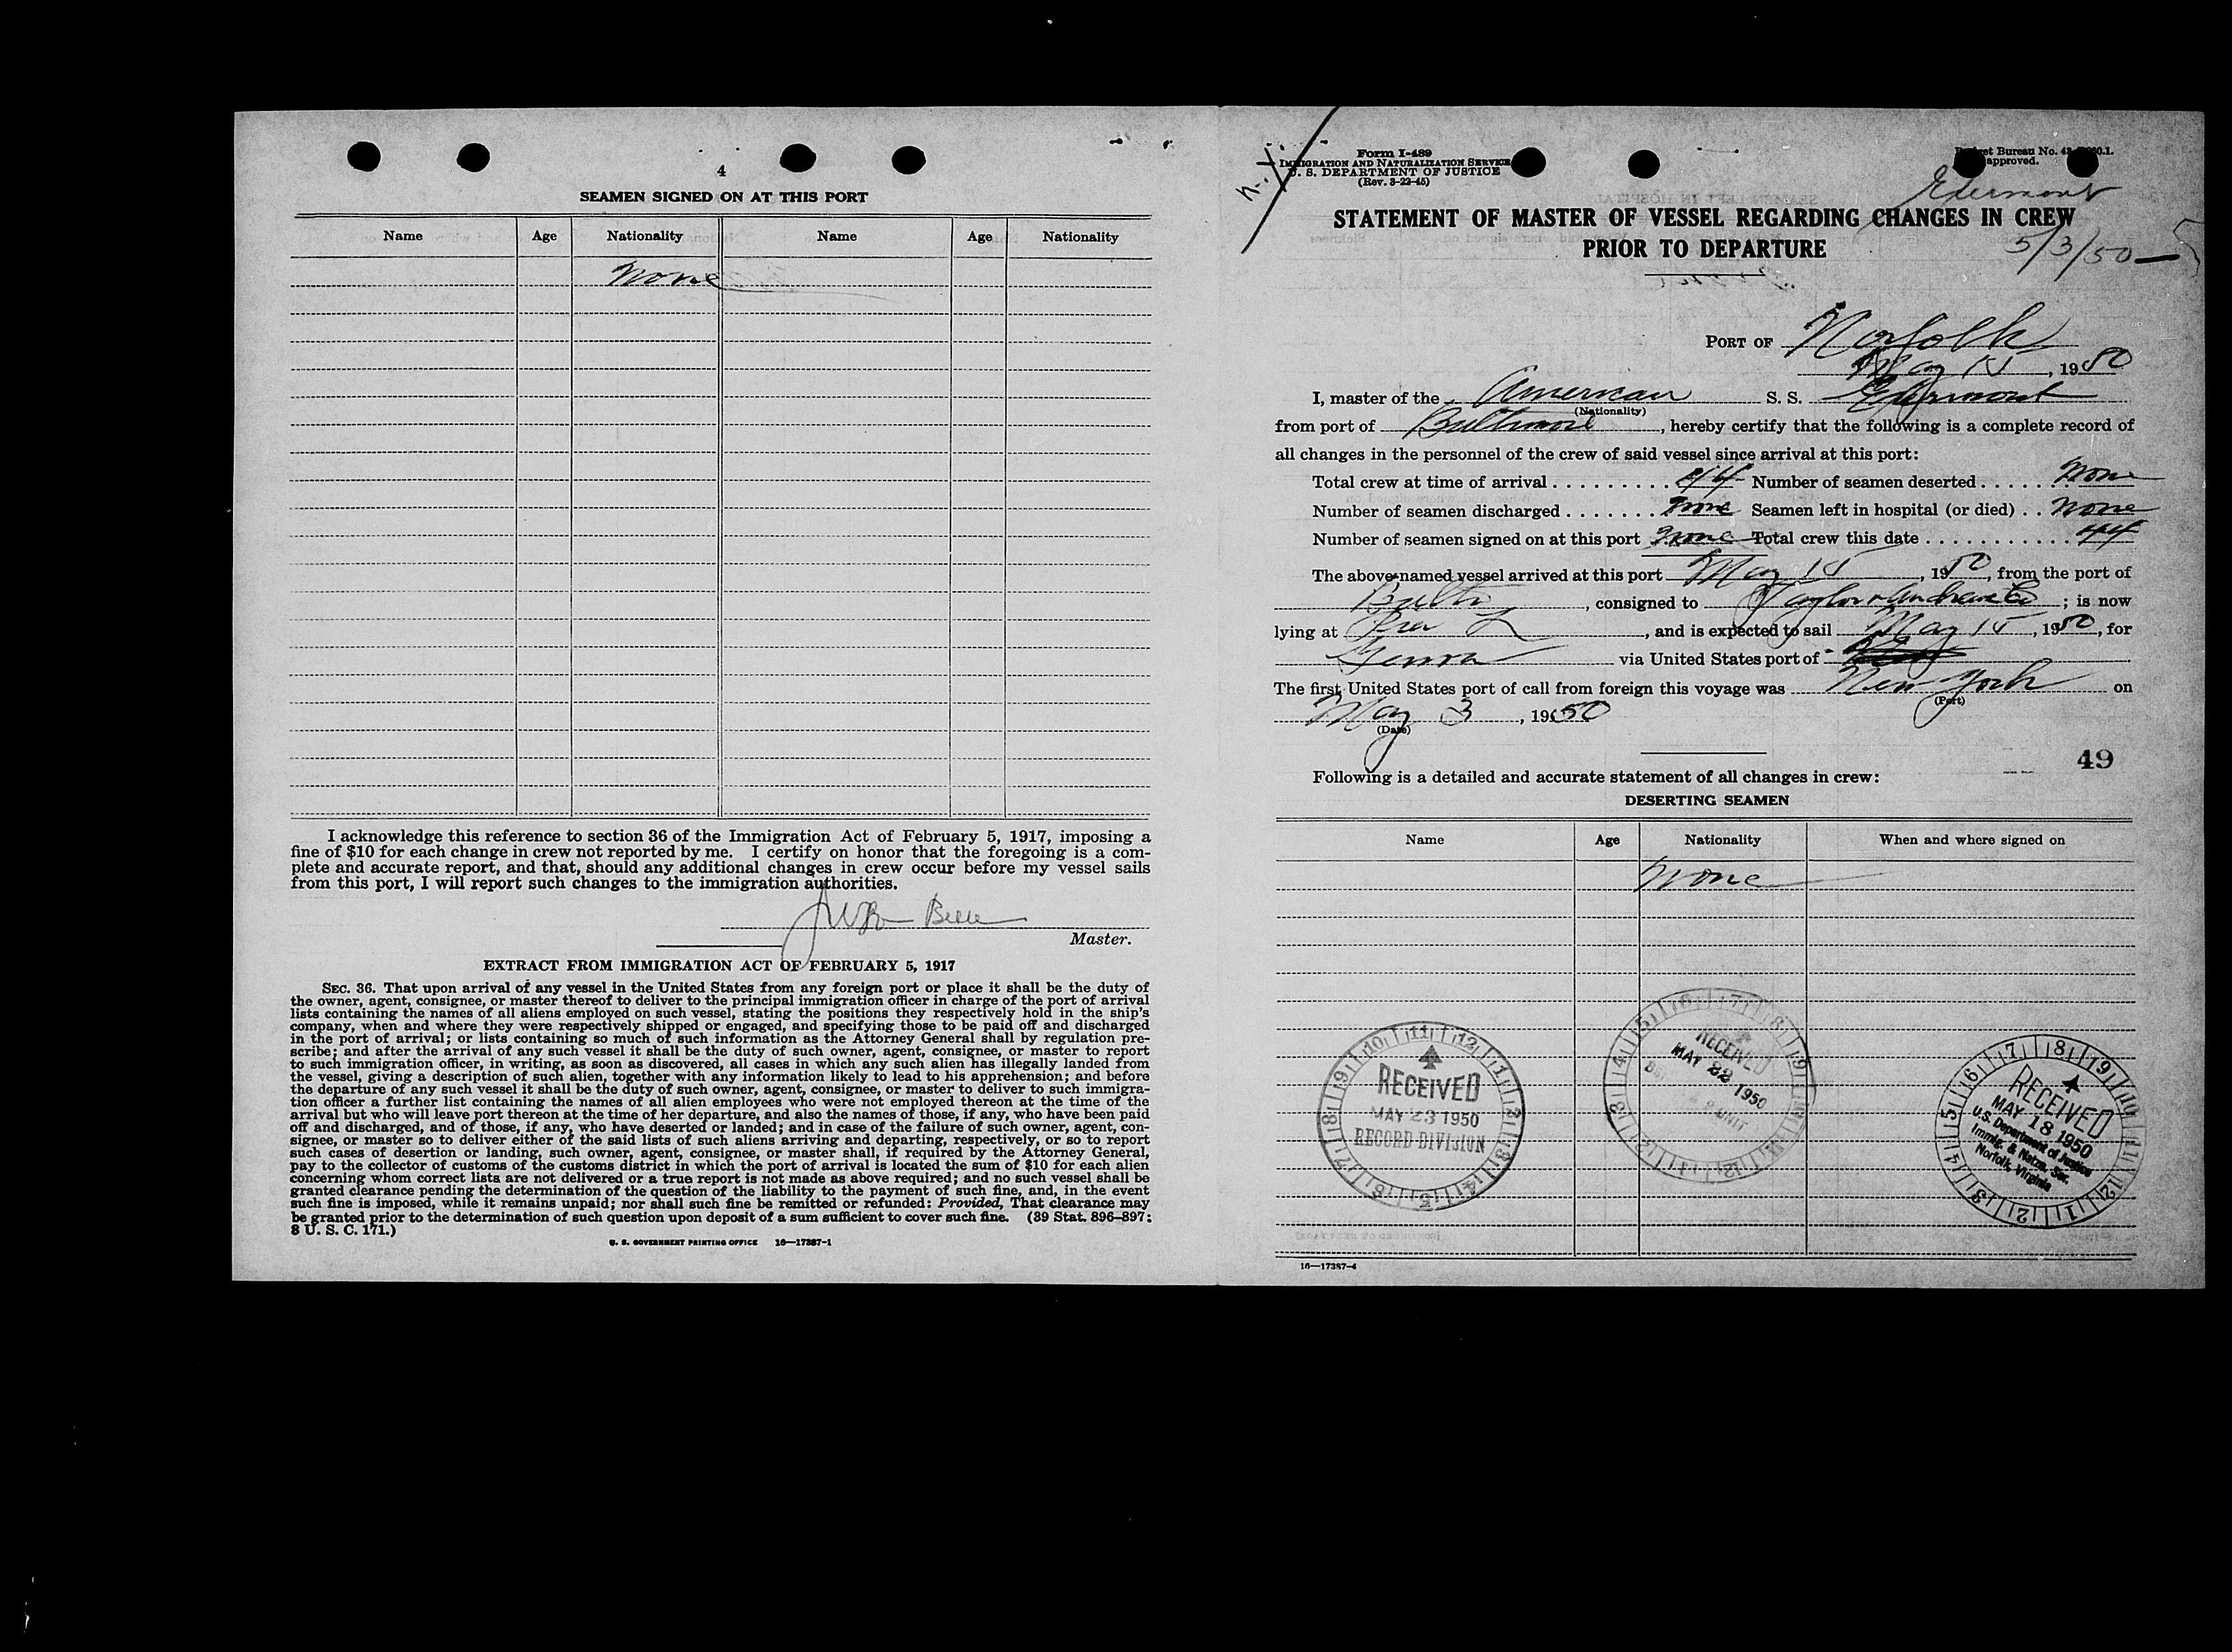 4
SEAMEN SIGNED ON AT THIS PORT
Name Age Nationality Name Age Nationality
None
I acknowledge this reference to section 36 of the Immigration Act of February 5, 1917, imposing a
fine of $10 for each change in crew not reported by me. I certify on honor that the foregoing is a com-
plete and accurate report, and that, should any additional changes in crew occur before my vessel sails
from this port, I will report such changes to the immigration authorities.
Master.
EXTRACT FROM IMMIGRATION ACT OF FEBRUARY 5, 1917
SEC. 36. That upon arrival of any vessel in the United States from any foreign port or place it shall be the duty of
the owner, agent, consignee, or master thereof to deliver to the principal immigration officer in charge of the port of arrival
lists containing the names of all aliens employed on such vessel, stating the positions they respectively hold in the ship's
company, when and where they were respectively shipped or engaged, and specifying those to be paid off and discharged
in the port of arrival; or lists containing so much of such information as the Attorney General shall by regulation pre-
scribe; and after the arrival of any such vessel it shall be the duty of such owner, agent, consignee, or master to report
to such immigration officer, in writing, as soon as discovered, all cases in which any such alien has illegally landed from
the vessel, giving a description of such alien, together with any information likely to lead to his apprehension; and before
the departure of any such vessel it shall be the duty of such owner, agent, consignee, or master to deliver to such immigra-
tion officer a further list containing the names of all alien employees who were not employed thereon at the time of the
arrival but who will leave port thereon at the time of her departure, and also the names of those, if any, who have been paid
off and discharged, and of those, if any, who have deserted or landed; and in case of the failure of such owner, agent, con-
signee, or master so to deliver either of the said lists of such aliens arriving and departing, respectively, or so to report
such cases of desertion or landing, such owner, agent, consignee, or master shall, if required by the Attorney General,
pay to the collector of customs of the customs district in which the port of arrival is located the sum of $10 for each alien
concerning whom correct lists are not delivered or a true report is not made as above required; and no such vessel shall be
granted clearance pending the determination of the question of the liability to the payment of such fine, and, in the event
such fine is imposed, while it remains unpaid; nor shall such fine be remitted or refunded: Provided, That clearance may
be granted prior to the determination of such question upon deposit of a sum sufficient to cover such fine. (39 Stat. 896-897;
8 U. S. C. 171.)
U. S. GOVERNMENT PRINTING OFFICE 16—17387-1
N.Y.
Form I-489
IMMIGRATION AND NATURALIZATION SERVICE
U. S. DEPARTMENT OF JUSTICE
(Rev. 3-22-45)
Bureau No.
approved.
STATEMENT OF MASTER OF VESSEL REGARDING CHANGES IN CREW
PRIOR TO DEPARTURE
5/3/50
PORT OF Norfolk
May 15, 1950
I, master of the American S. S.
(Nationality)
from port of Baltimore, hereby certify that the following is a complete record of
all changes in the personnel of the crew of said vessel since arrival at this port:
Total crew at time of arrival 44 Number of seamen deserted None
Number of seamen discharged None Seamen left in hospital (or died) None
Number of seamen signed on at this port None Total crew this date 44
The above-named vessel arrived at this port May 15, 1950, from the port of
Balto, consigned to Taylor & ; is now
lying at Pier L, and is expected to sail May 15, 1950, for
Genoa via United States port of
The first United States port of call from foreign this voyage was New York on
(Port)
May 3, 1950
(Date)
49
Following is a detailed and accurate statement of all changes in crew:
DESERTING SEAMEN
Name Age Nationality When and where signed on
None
RECEIVED
MAY 23 1950
RECORD DIVISION
RECEIVED
MAY 1950
UNIT
RECEIVED
MAY 18 1950
U.S. Department of Justice
Immig. & Natzn. Ser.
Norfolk, Virginia
16—17387-4